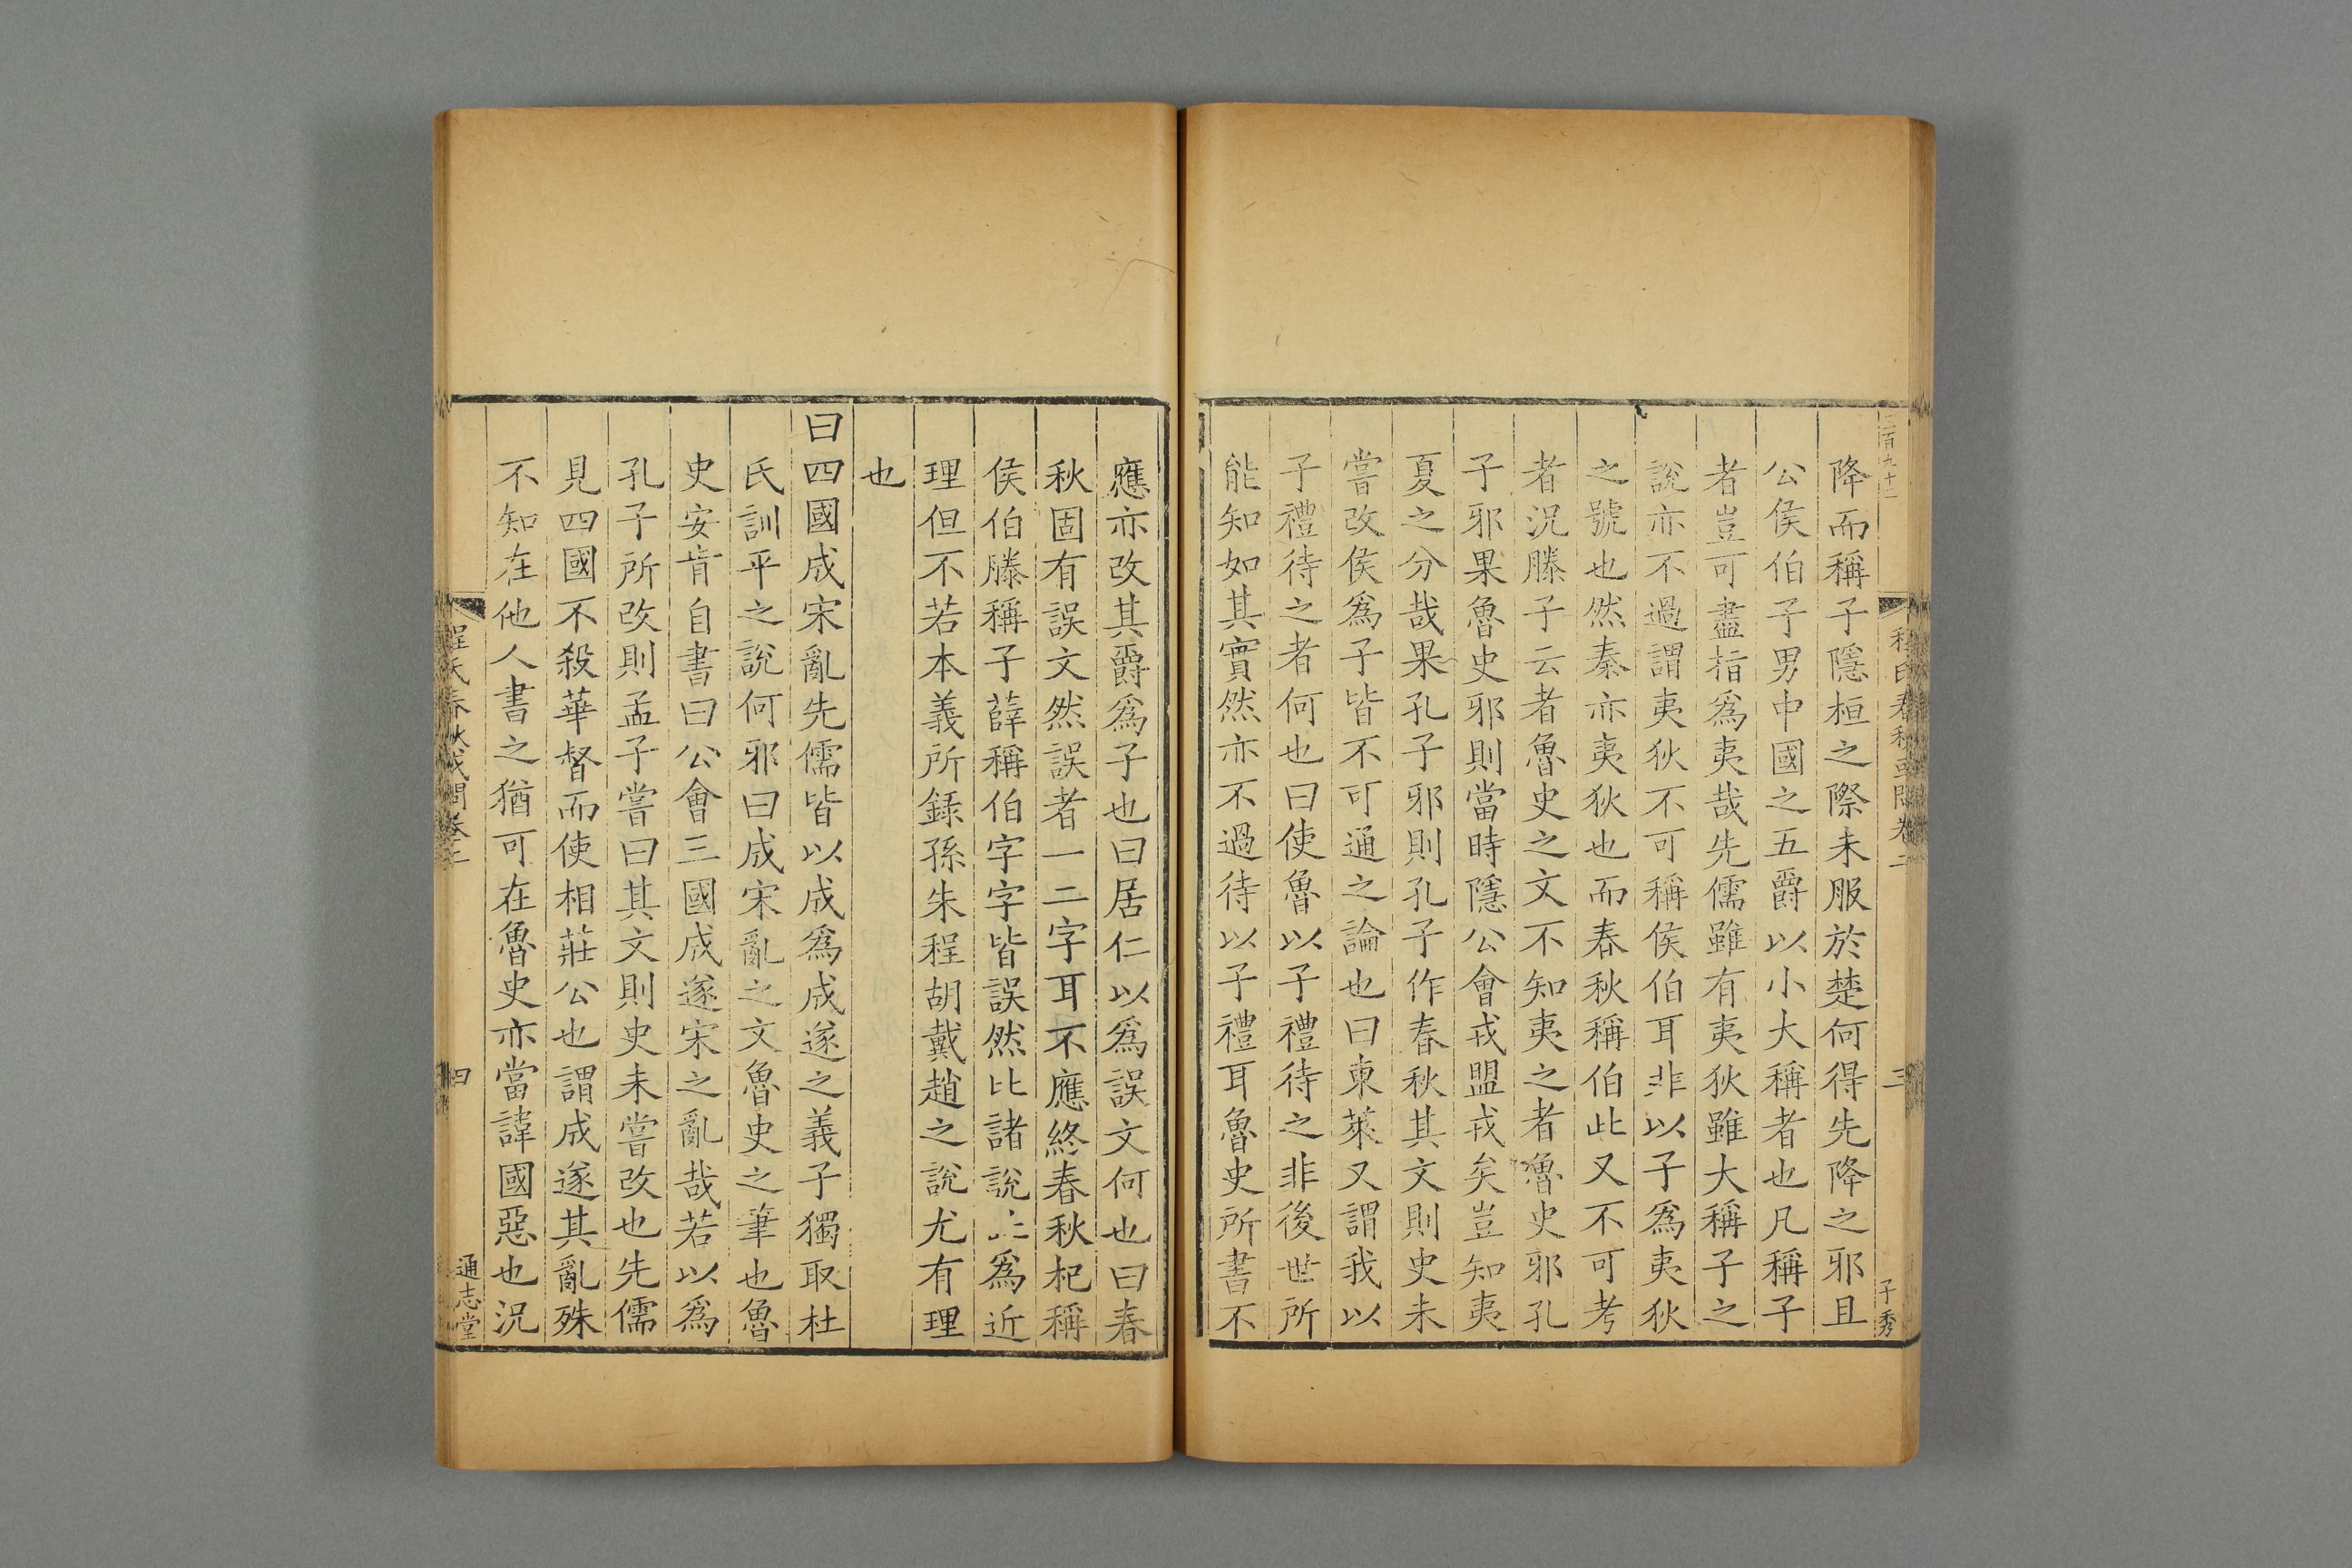 三百九十二
程氏春秋或問卷二
三
子秀
降而稱子隱桓之際未服於楚何得先降之邪且
公侯伯子男中國之五爵以小大稱者也凡稱子
者豈可盡指爲夷哉先儒雖有夷狄雖大稱子之
說亦不過謂夷狄不可稱侯伯耳非以子爲夷狄
之號也然秦亦夷狄也而春秋稱伯此又不可考
者況滕子云者魯史之文不知夷之者魯史邪孔
子邪果魯史邪則當時隱公會戎盟戎矣豈知夷
夏之分哉果孔子邪則孔子作春秋其文則史未
嘗改侯爲子皆不可通之論也曰東萊又謂我以
子禮待之者何也曰使魯以子禮待之非後世所
能知如其實然亦不過待以子禮耳魯史所書不
應亦改其爵爲子也曰居仁以爲誤文何也曰春
秋固有誤文然誤者一二字耳不應終春秋杞稱
侯伯滕稱子薛稱伯字字皆誤然比諸說止爲近
理但不若本義所錄孫朱程胡戴趙之說尤有理
也
曰四國成宋亂先儒皆以成爲成遂之義子獨取杜
氏訓平之說何邪曰成宋亂之文魯史之筆也魯
史安肯自書曰公會三國成遂宋之亂哉若以爲
孔子所改則孟子嘗曰其文則史未嘗改也先儒
見四國不殺華督而使相莊公也謂成遂其亂殊
不知在他人書之猶可在魯史亦當諱國惡也況
程氏春秋或問卷二
四
通志堂